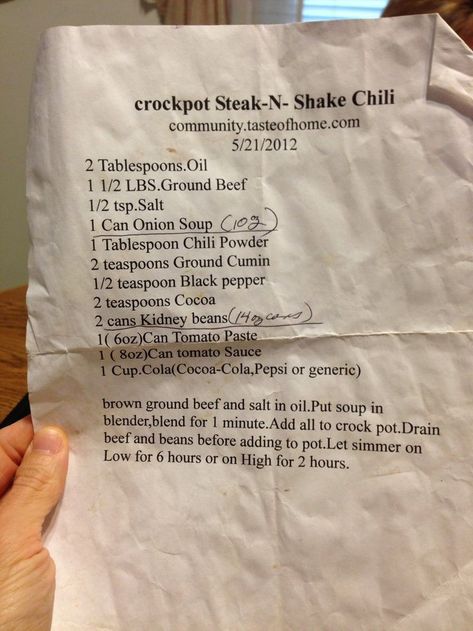 crockpot Steak-N- Shake Chili
community.tasteofhome.com
5/21/2012
2 Tablespoons.Oil
1 1/2 LBS.Ground Beef
1/2 tsp.Salt
1 Can Onion Soup (10oz)
1 Tablespoon Chili Powder
2 teaspoons Ground Cumin
1/2 teaspoon Black pepper
2 teaspoons Cocoa
2 cans Kidney beans(14oz cans)
1( 6oz)Can Tomato Paste
1 ( 8oz)Can tomato Sauce
1 Cup.Cola(Cocoa-Cola,Pepsi or generic)
brown ground beef and salt in oil.Put soup in
blender,blend for 1 minute.Add all to crock pot.Drain
beef and beans before adding to pot.Let simmer on
Low for 6 hours or on High for 2 hours.